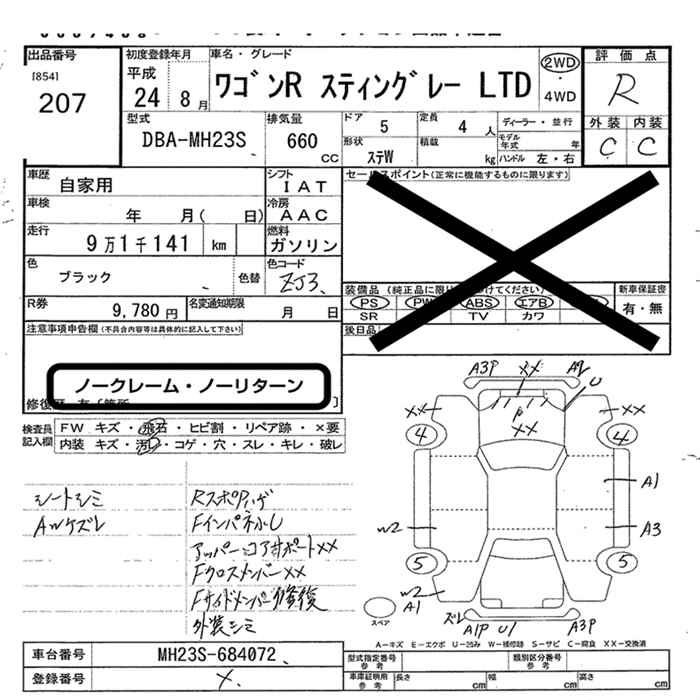 出品番号
[854]
207
初度登録年月
平成
24 8 月
車名・グレード
ワゴンR スティングレー LTD
2WD
・
4WD
評価点
R
外装 内装
C C
型式
DBA-MH23S
排気量
660
CC
ドア
5
定員
4 人
ディーラー・並行
モデル年式 年
形状
ステW
積載
kg
ハンドル 左・右
車歴
自家用
シフト
IAT
車検
年 月( 日)
冷房
AAC
走行
9万1千141 km
燃料
ガソリン
色
ブラック
色替
色コード
ZJ3
R券
9,780円
名変通知期限
月 日
セールスポイント(正常に機能するものに限ります)
装備品 (純正品に限り
けてください)
新車保証書
PS PW ABS エアB
SR TV カワ
有・無
後日品
注意事項申告欄 (不具合内容等は具体的に記入して下さい)
ノークレーム・ノーリターン
修復歴
検査員記入欄
FW キズ・飛石・ヒビ割・リペア跡・×要
内装 キズ・汚レ・コゲ・穴・スレ・キレ・破レ
シートシミ
AWケズレ
Fインパネハズし
アッパーコアサポートXX
FクロスメンバーXX
Fサイドメンバー修復
外装シミ
A3P XX A2
U
XX XX
P
XX
4 4
A1
W2 A3
5 5
W2
A1
スペア
ズレ
A1P U1 A3P
A-キズ E-エクボ U-凹み W-補修跡 S-サビ C-腐食 XX-交換済
車台番号
MH23S-684072
登録番号
×
型式指定番号 参考
類別区分番号 参考
車庫証明用 参考
長さ cm
幅 cm
高さ cm